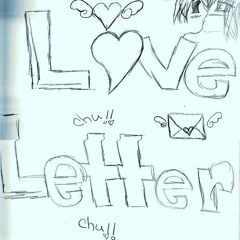 Love
chu!!
Letter
chu!!